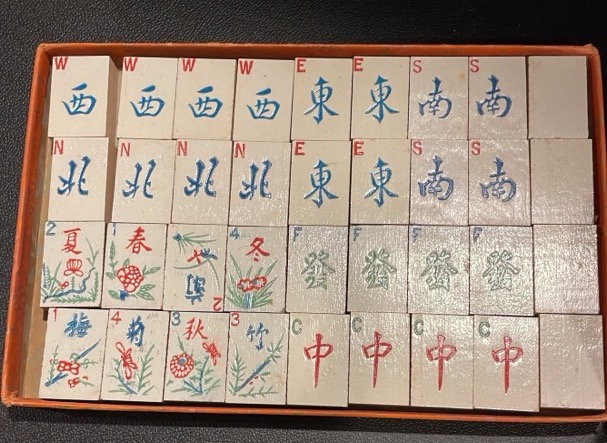 W W W W E E S S
西 西 西 西 東 東 南 南
N N N N E E S S
北 北 北 北 東 東 南 南
2 1 2 4 F F F F
夏 春 蘭 冬 發 發 發 發
1 4 3 3 C C C C
梅 菊 秋 竹 中 中 中 中